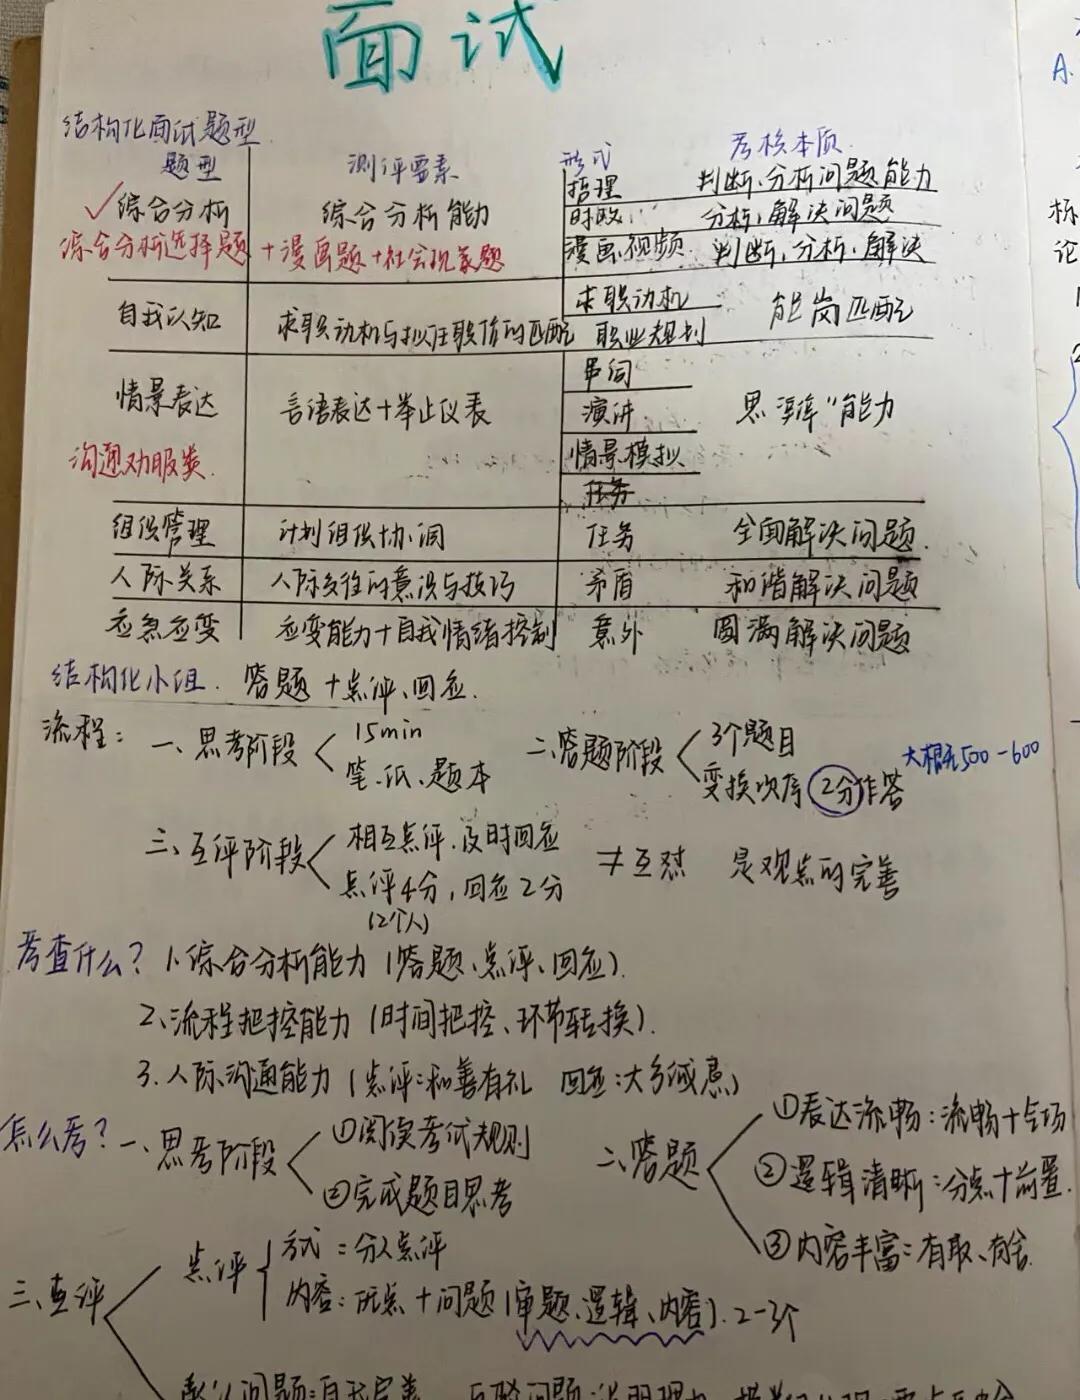 面试
结构化面试题型
题型 测评要素 形式 考核本质
✓综合分析 综合分析能力 哲理 判断、分析问题能力
时政 分析、解决问题
综合分析选择题 +漫画题+社会现象题 漫画、视频 判断、分析、解决
自我认知 求职动机与拟任职位的匹配 求职动机 能岗匹配
职业规划
情景表达 言语表达+举止仪表 串词 思"辨"能力
演讲
沟通劝服类 情景模拟
组织管理 计划组织协调 任务 全面解决问题.
人际关系 人际交往的意识与技巧 矛盾 和谐解决问题
应急应变 应变能力+自我情绪控制 意外 圆满解决问题
结构化小组. 答题+点评、回应.
流程: 一、思考阶段 15min 二、答题阶段 3个题目
笔、纸、题本 变换次序 2分作答 大概500-600
三、互评阶段 相互点评.及时回应 ≠互怼 是观点的完善
点评4分,回应2分
(2个人)
考查什么? 1.综合分析能力(答题、点评、回应).
2.流程把控能力(时间把控、环节转换).
3.人际沟通能力(点评:和善有礼 回应:大多诚恳)
怎么考? 一、思考阶段 ①阅读考试规则 二、答题 ①表达流畅:流畅+气场
②完成题目思考 ②逻辑清晰:分点+前置.
③内容丰富:有取、有舍.
三、互评 点评 方式:分人点评
内容:优点+问题(审题、逻辑、内容).2-3个
A.
标
论